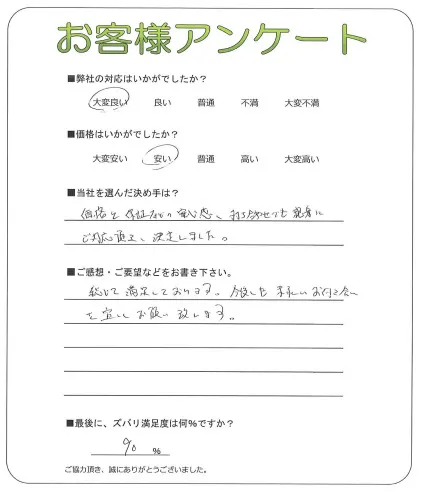 お客様アンケート
■弊社の対応はいかがでしたか?
大変良い 良い 普通 不満 大変不満
■価格はいかがでしたか?
大変安い 安い 普通 高い 大変高い
■当社を選んだ決め手は?
価格と保証などの安心感、打ち合わせでも親身に
ご対応頂き、決定しました。
■ご感想・ご要望などをお書き下さい。
総じて満足しております。今後とも末永いお付き合い
を宜しくお願い致します。
■最後に、ズバリ満足度は何%ですか?
90 %
ご協力頂き、誠にありがとうございました。